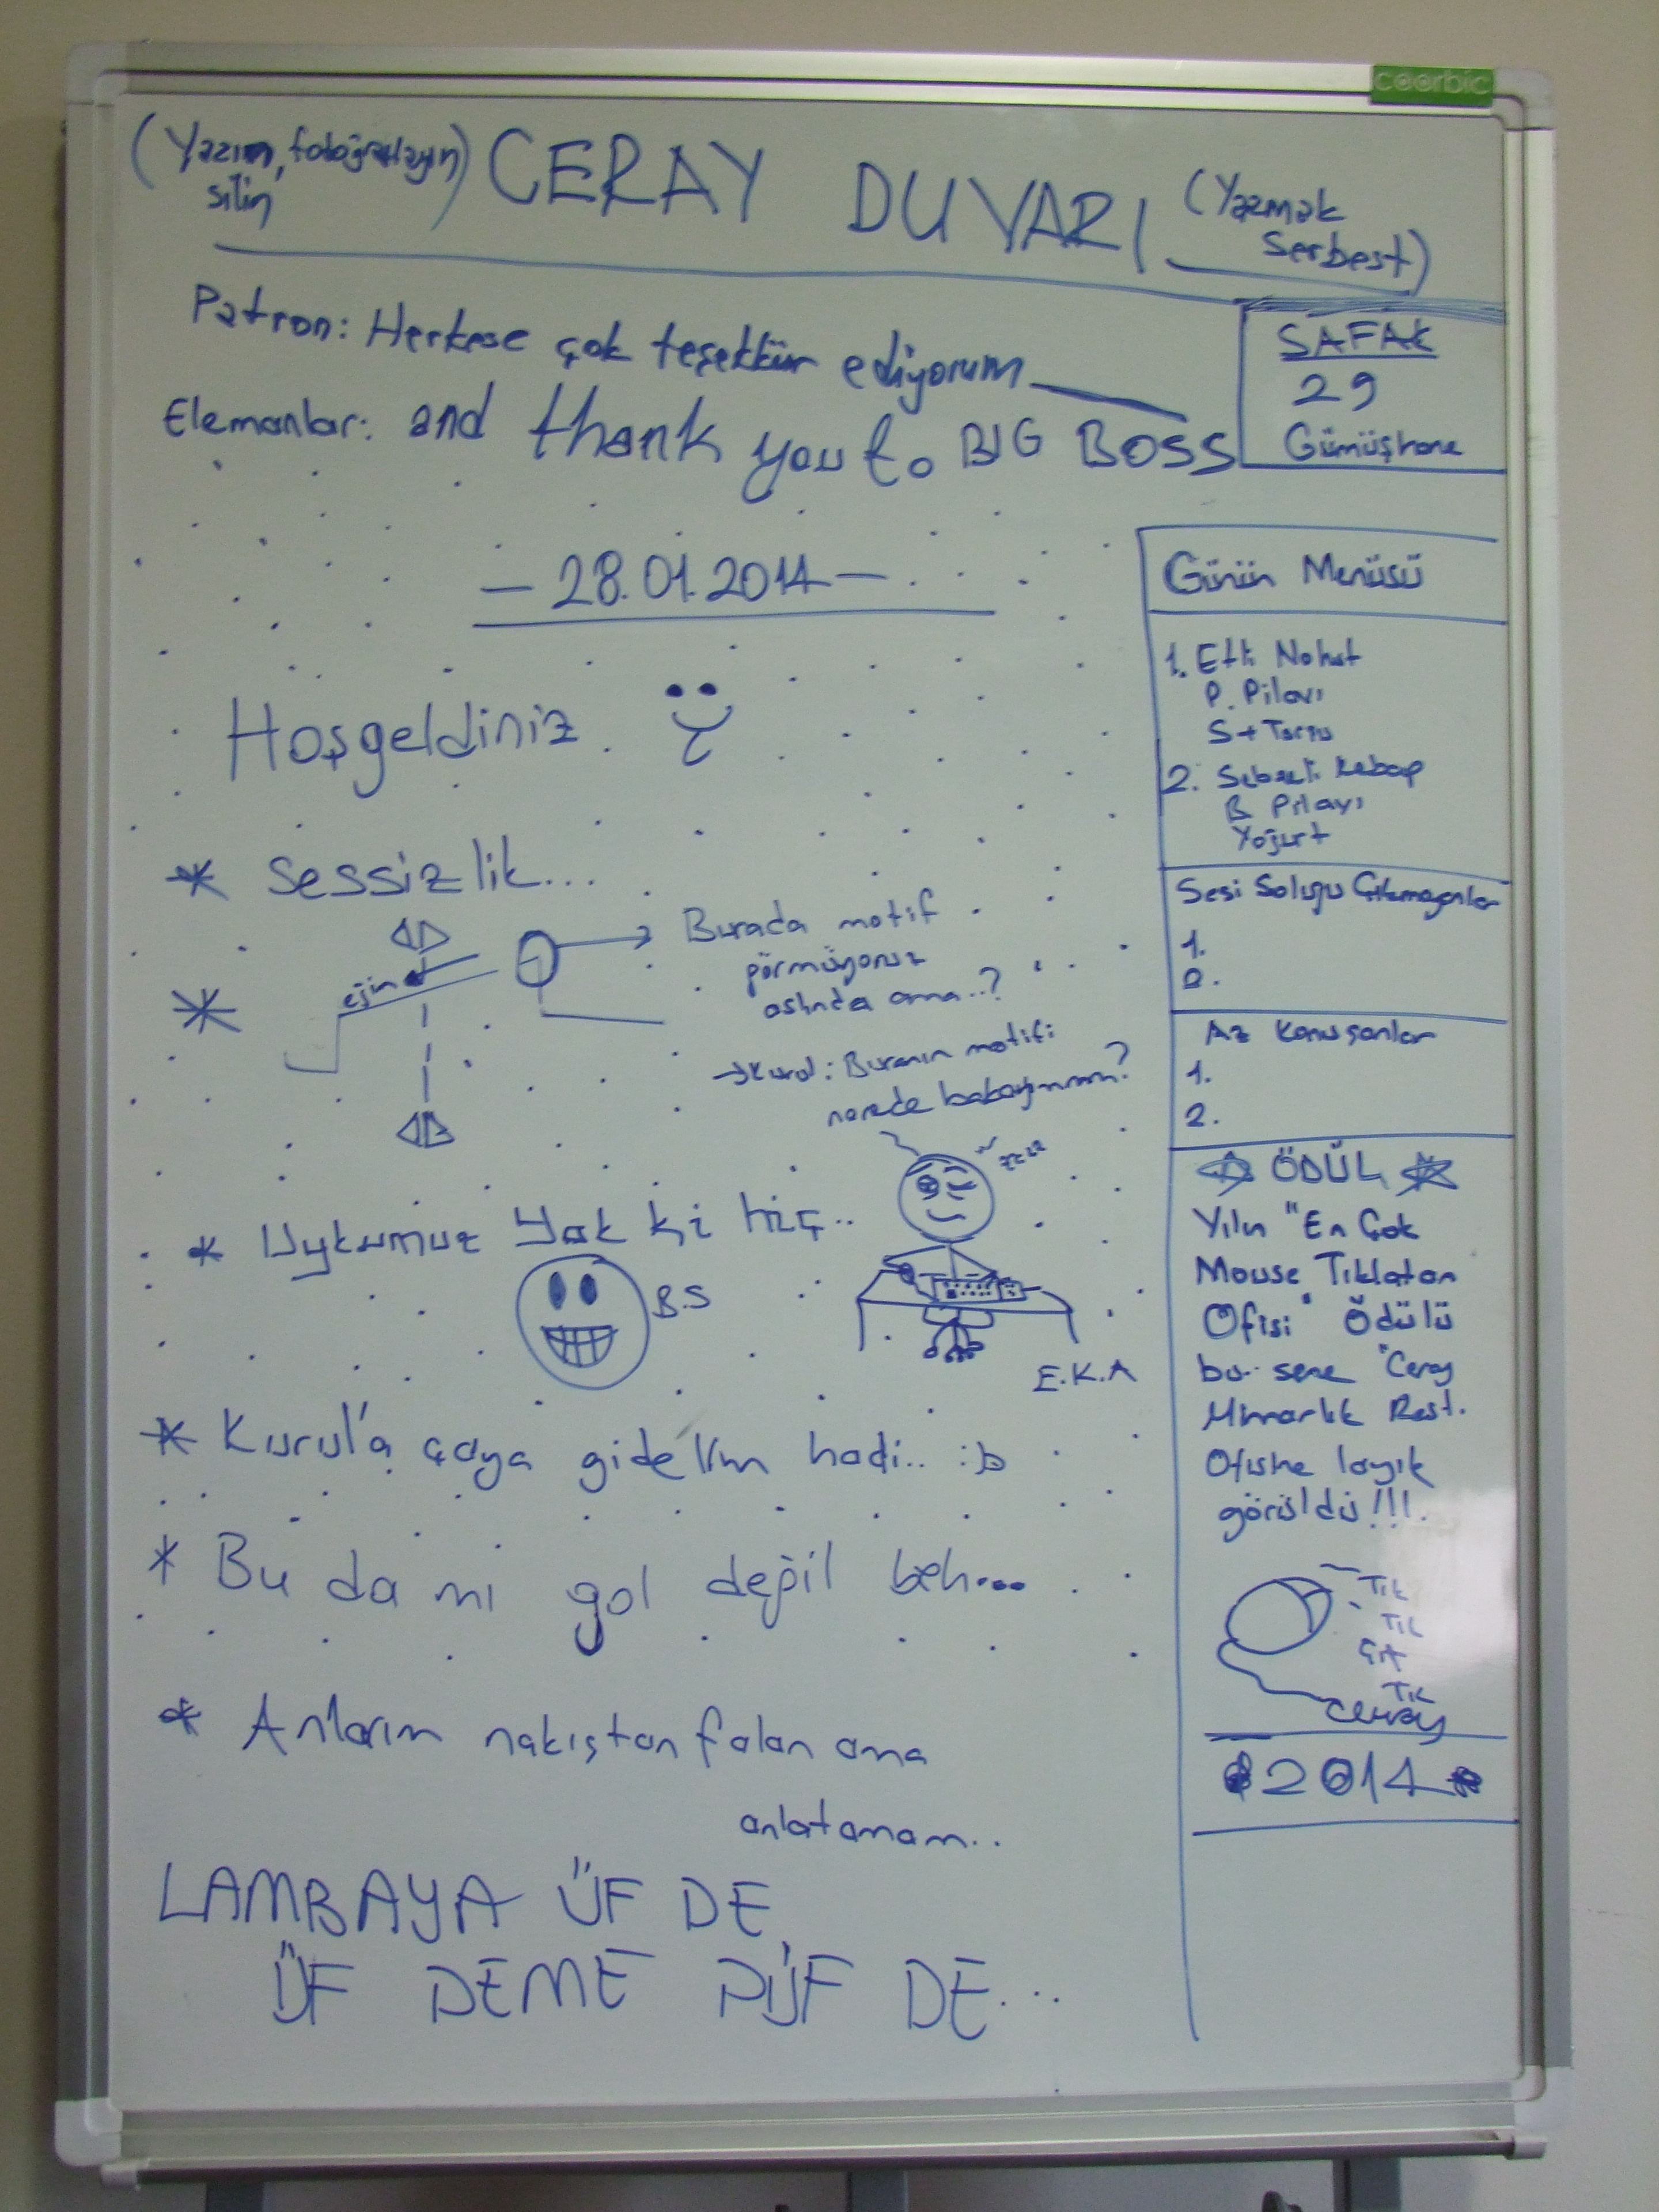 coorbic
(Yazın, fotoğraflayın, silin)
CERAY DUVARI
(Yazmak
Serbest)
Patron: Herkese çok teşekkür ediyorum
Elemanlar: and thank you to BIG BOSS
ŞAFAK
29
Gümüşhane
- 28.01.2014 -
Hoşgeldiniz
* Sessizlik...
*
eğim
Burada motif
görmüyoruz
aslında ama..?
→ Kurul: Buranın motifi
nerede babayımmm?
zzzz
* Uykumuz Yok ki hiç..
B.S
E.K.A
* Kurul'a çaya gidelim hadi.. :b
* Bu da mı gol değil beh...
* Anlarım nakıştan falan ama
anlatamam..
LAMBAYA ÜF DE
ÜF DEME PÜF DE...
Günün Menüsü
1. Etli Nohut
P. Pilavı
S + Turşu
2. Sebzeli Kebap
B Pilavı
Yoğurt
Sesi Soluğu Çıkmayanlar
1.
2.
Az Konuşanlar
1.
2.
ÖDÜL
Yılın "En Çok
Mouse Tıklatan
Ofisi" Ödülü
bu sene "Ceray
Mimarlık Rest.
Ofisine layık
görüldü!!!.
Tık
Tık
Çıt
Tık
Ceray
2014